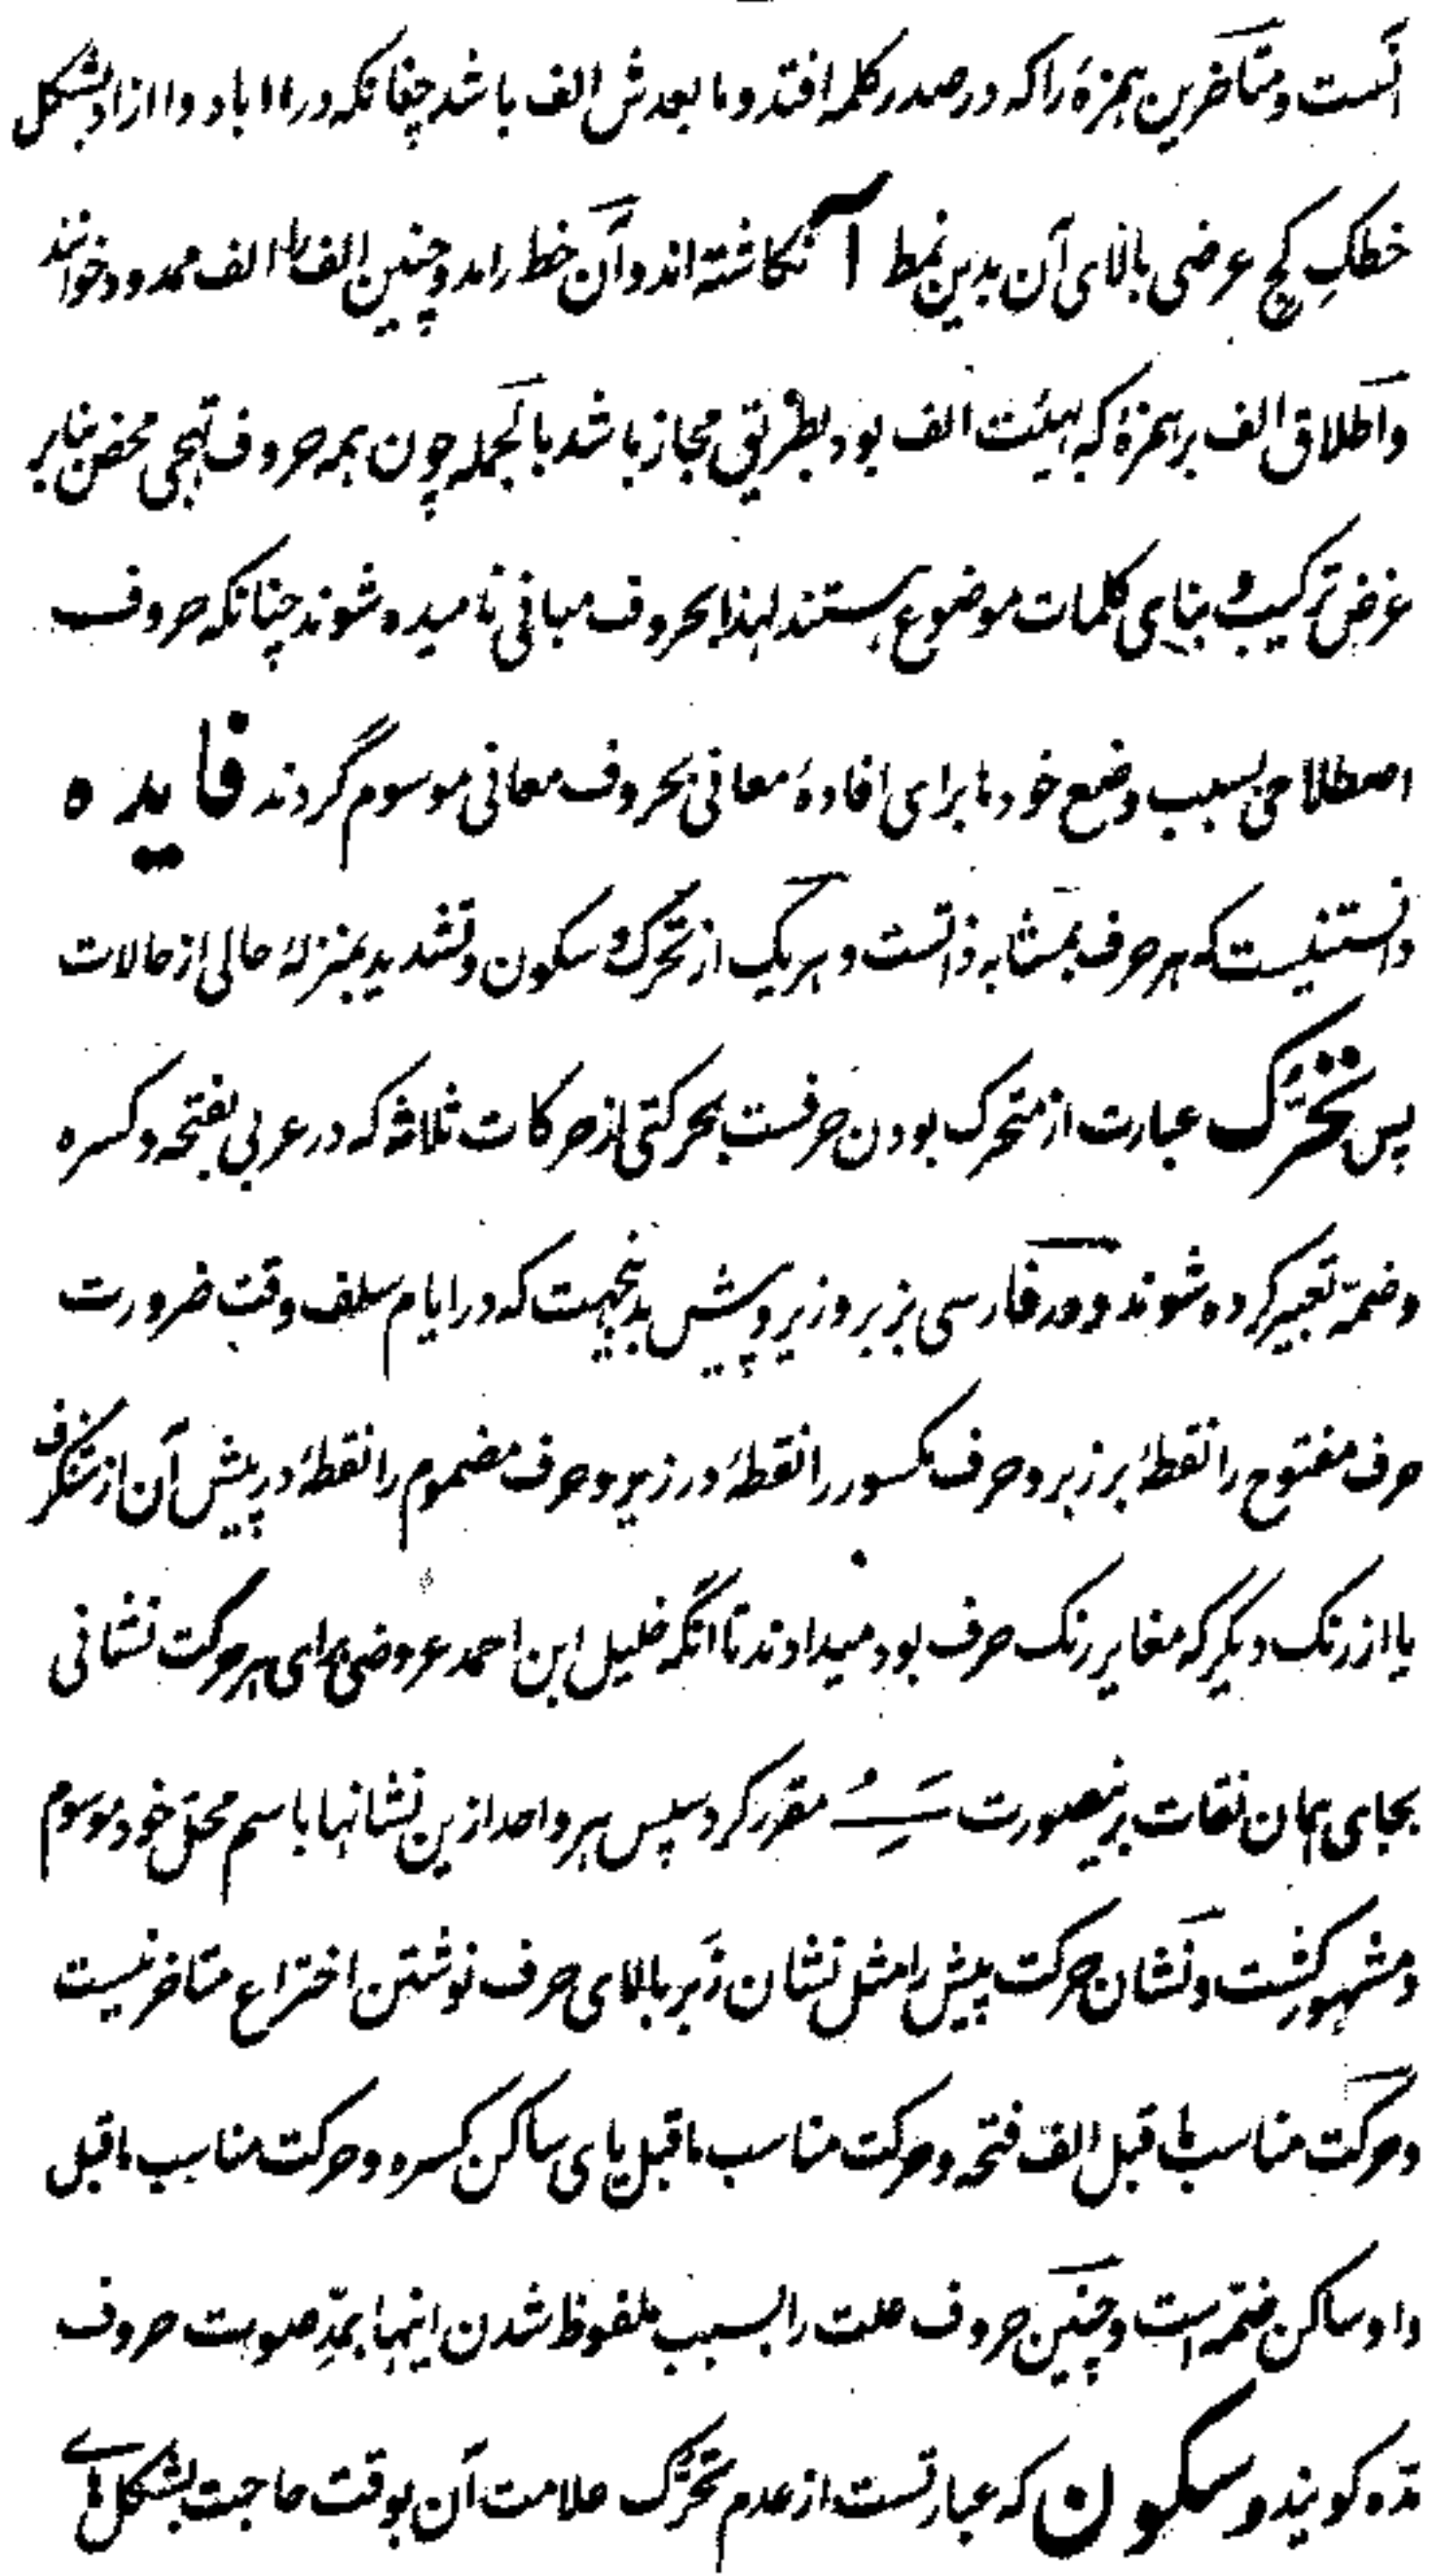 آنست و متأخرین همزهٔ را که در صدر کلمه افتد و ما بعدش الف باشد چنانکه در ااباد و اازاد بشکل
خطکِ کج عرضی بالای آن بدین نمط آ نگاشته‌اند و آن خط را مد و چنین الف را الف ممدود خوانند
و اطلاق الف بر همزهٔ که بهیئت الف بود بطریق مجاز باشد بالجمله چون همه حروف تهجی محض بنابر
غرض ترکیب و بنای کلمات موضوع هستند لهذا بحروف مبانی نامیده شوند چنانکه حروف
اصطلاحی بسبب وضع خودها برای افادهٔ معانی بحروف معانی موسوم گردند فایده
دانستنیست که هر حرف بمثابه ذاتست و هر یک از تحرک و سکون و تشدید بمنزلهٔ حالی از حالات
پس تحرُّک عبارت از متحرک بودن حرفست بحرکتی از حرکات ثلاثه که در عربی بفتحه و کسره
و ضمّه تعبیر کرده شوند و در فارسی بزبر و زیر و پیش بدینجهت که در ایام سلف وقت ضرورت
حرف مفتوح را نقطهٔ بر زبر و حرف مکسور را نقطهٔ در زیر و حرف مضموم را نقطهٔ در پیش آن از شنگرف
یا از رنگ دیگر که مغایر رنگ حرف بود میدادند تا آنکه خلیل ابن احمد عروضی برای هر حرکت نشانی
بجای همان نقات برینصورت ـَـِـُ مقرر کرد سپس هر واحد ازین نشانها باسم محل خود موسوم
و مشهور گشت و نشان حرکت پیش را مثل نشان زبر بالای حرف نوشتن اختراع متاخرینست
و حرکت مناسب ما قبل الف فتحه و حرکت مناسب ماقبل یای ساکن کسره و حرکت مناسب ماقبل
واو ساکن ضمّه است و چنین حروف علت را بسبب ملفوظ شدن اینها بمدِّ صوت حروف
مدّه گویند و سکون که عبارتست از عدم تحرُّک علامت آن بوقت حاجت بشکل های